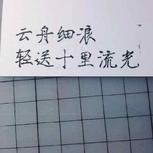 云舟细浪
轻送十里流光